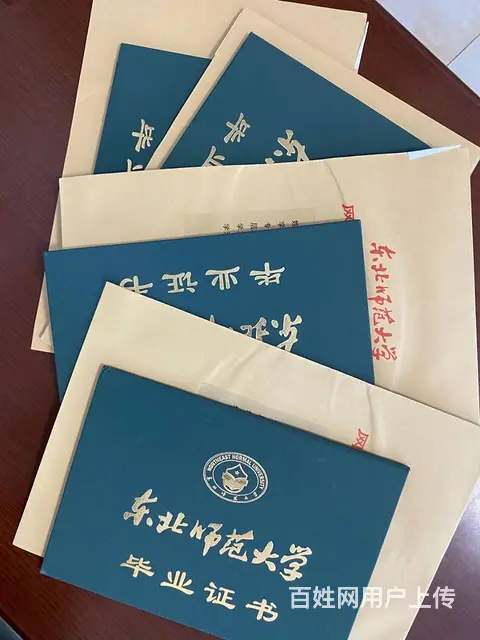 毕业
东
毕业
网
东北师范大学
毕业证书
东北
NORTHEAST NORMAL UNIVERSITY
东北师范大学
毕业证书
百姓网用户上传